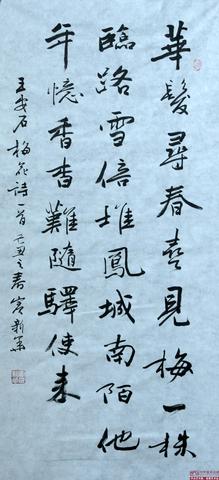 華髮尋春喜見梅一株
臨路雪倍堆鳳城南陌他
年憶香杳難隨驛使来
王安石梅花詩一首己丑之春